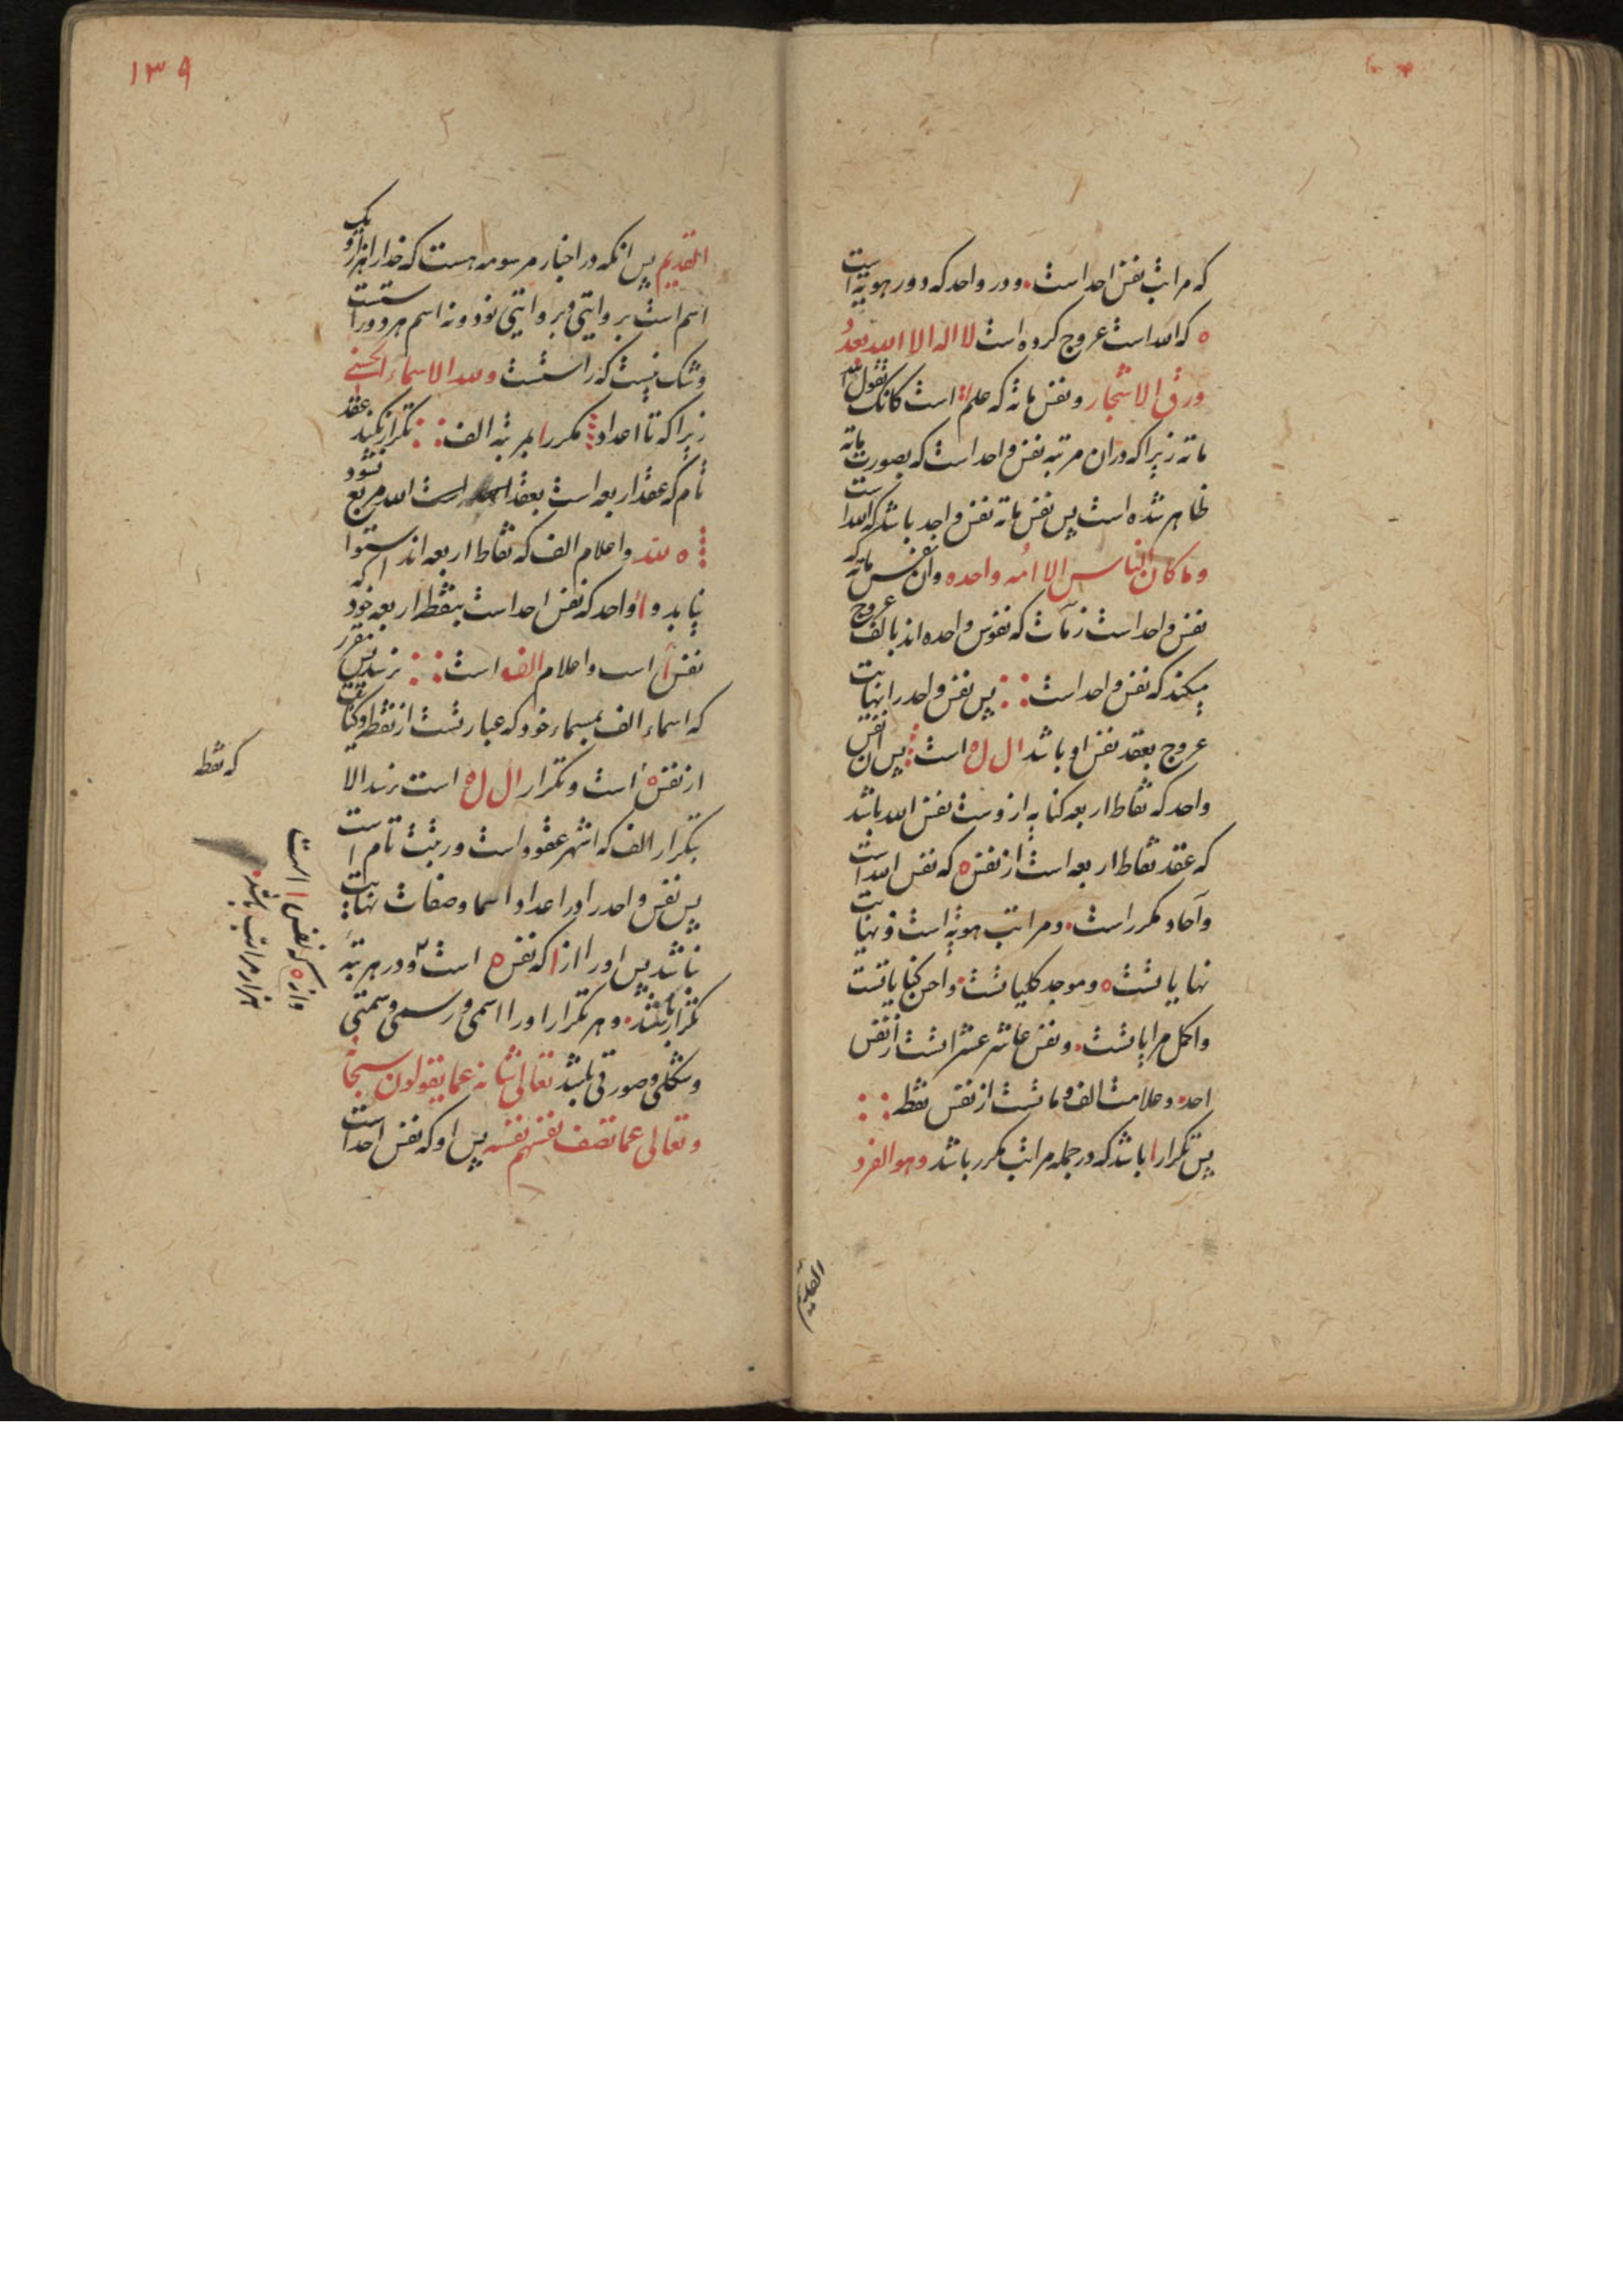 که مراتب نفس احد است . و دور واحد که دور هویه است
ه که الله است عروج کرده است لا اله الا الله بعدد
ورق الاشجار و نفس مائه که علم است کانک تقول
مائه زیرا که در ان مرتبه نفس واحد است که بصورت مائه
ظاهر شده است پس نفس مائه نفس واحد باشد که الله است
وما کان الناس الا امه واحده وان نفس مائه که
نفس واحد است که نفوس واحده اند بالف عروج
میکند که نفس واحد است : : پس نفس واحد را نهایت
عروج بعقد نفس او باشد ال ل ه است پس ان نفس
واحد که نقاط اربعه کنایه از وست نفس الله باشد
که عقد نقاط اربعه است از نفس ه که نفس الله است
و آحاد مکرر است . و مراتب هویه است و نهایت
نهایاتست ه و موجد کلیاتست . و احسن کنایاتست
و اکمل مرایاتست . و نفس عاشر عشراتست از نفس
احد . و علامت الف و ماتست از نفس نقط : :
پس تکرار ا باشد که در جمله مراتب مکرر باشد وهو الفرد
القدیم
۱۳۹
القدیم پس انکه در اخبار مرسومه هست که خدا را هزار و یک
اسم است بروایتی و بروایتی نود و نه اسم هر دو راستست
و شک نیست که راستست ولله الاسماء الحسنی
زیرا که تا اعداد مکرر ا بمرتبه الف : : تکرار نکنید عقد
تام که عقد اربعه است بعقد است الله مربع نشود
ه لله و اعلام الف که نقاط اربعه اند استوا
نیابد و ا واحد که نفس احد است بنقط اربعه خود که
نفس ا است و اعلام الف است : : نرسد پس مقرر
که اسماء الف بمسماء خود که عبارتست از نقطه و کنایت
از نفس ه است و تکرار ال ل ه است نرسد الا
بتکرار الف که اشهر عقود است و رتبت تام است
پس نفس واحد را در اعداد و اسما و صفات نهایت
نباشد پس او را از ا که نفس ه است و در هر مرتبه
تکرار باشد . و هر تکرار او را اسمی و رسمی و سمتی
و شکلی و صورتی باشد تعالی شانه عما یقولون سبحانه
وتعالی عما تصف نفسهم نفسه پس او که نفس احد است
که نقطه
واژه که نفس ا است
هزار مراتب باشد